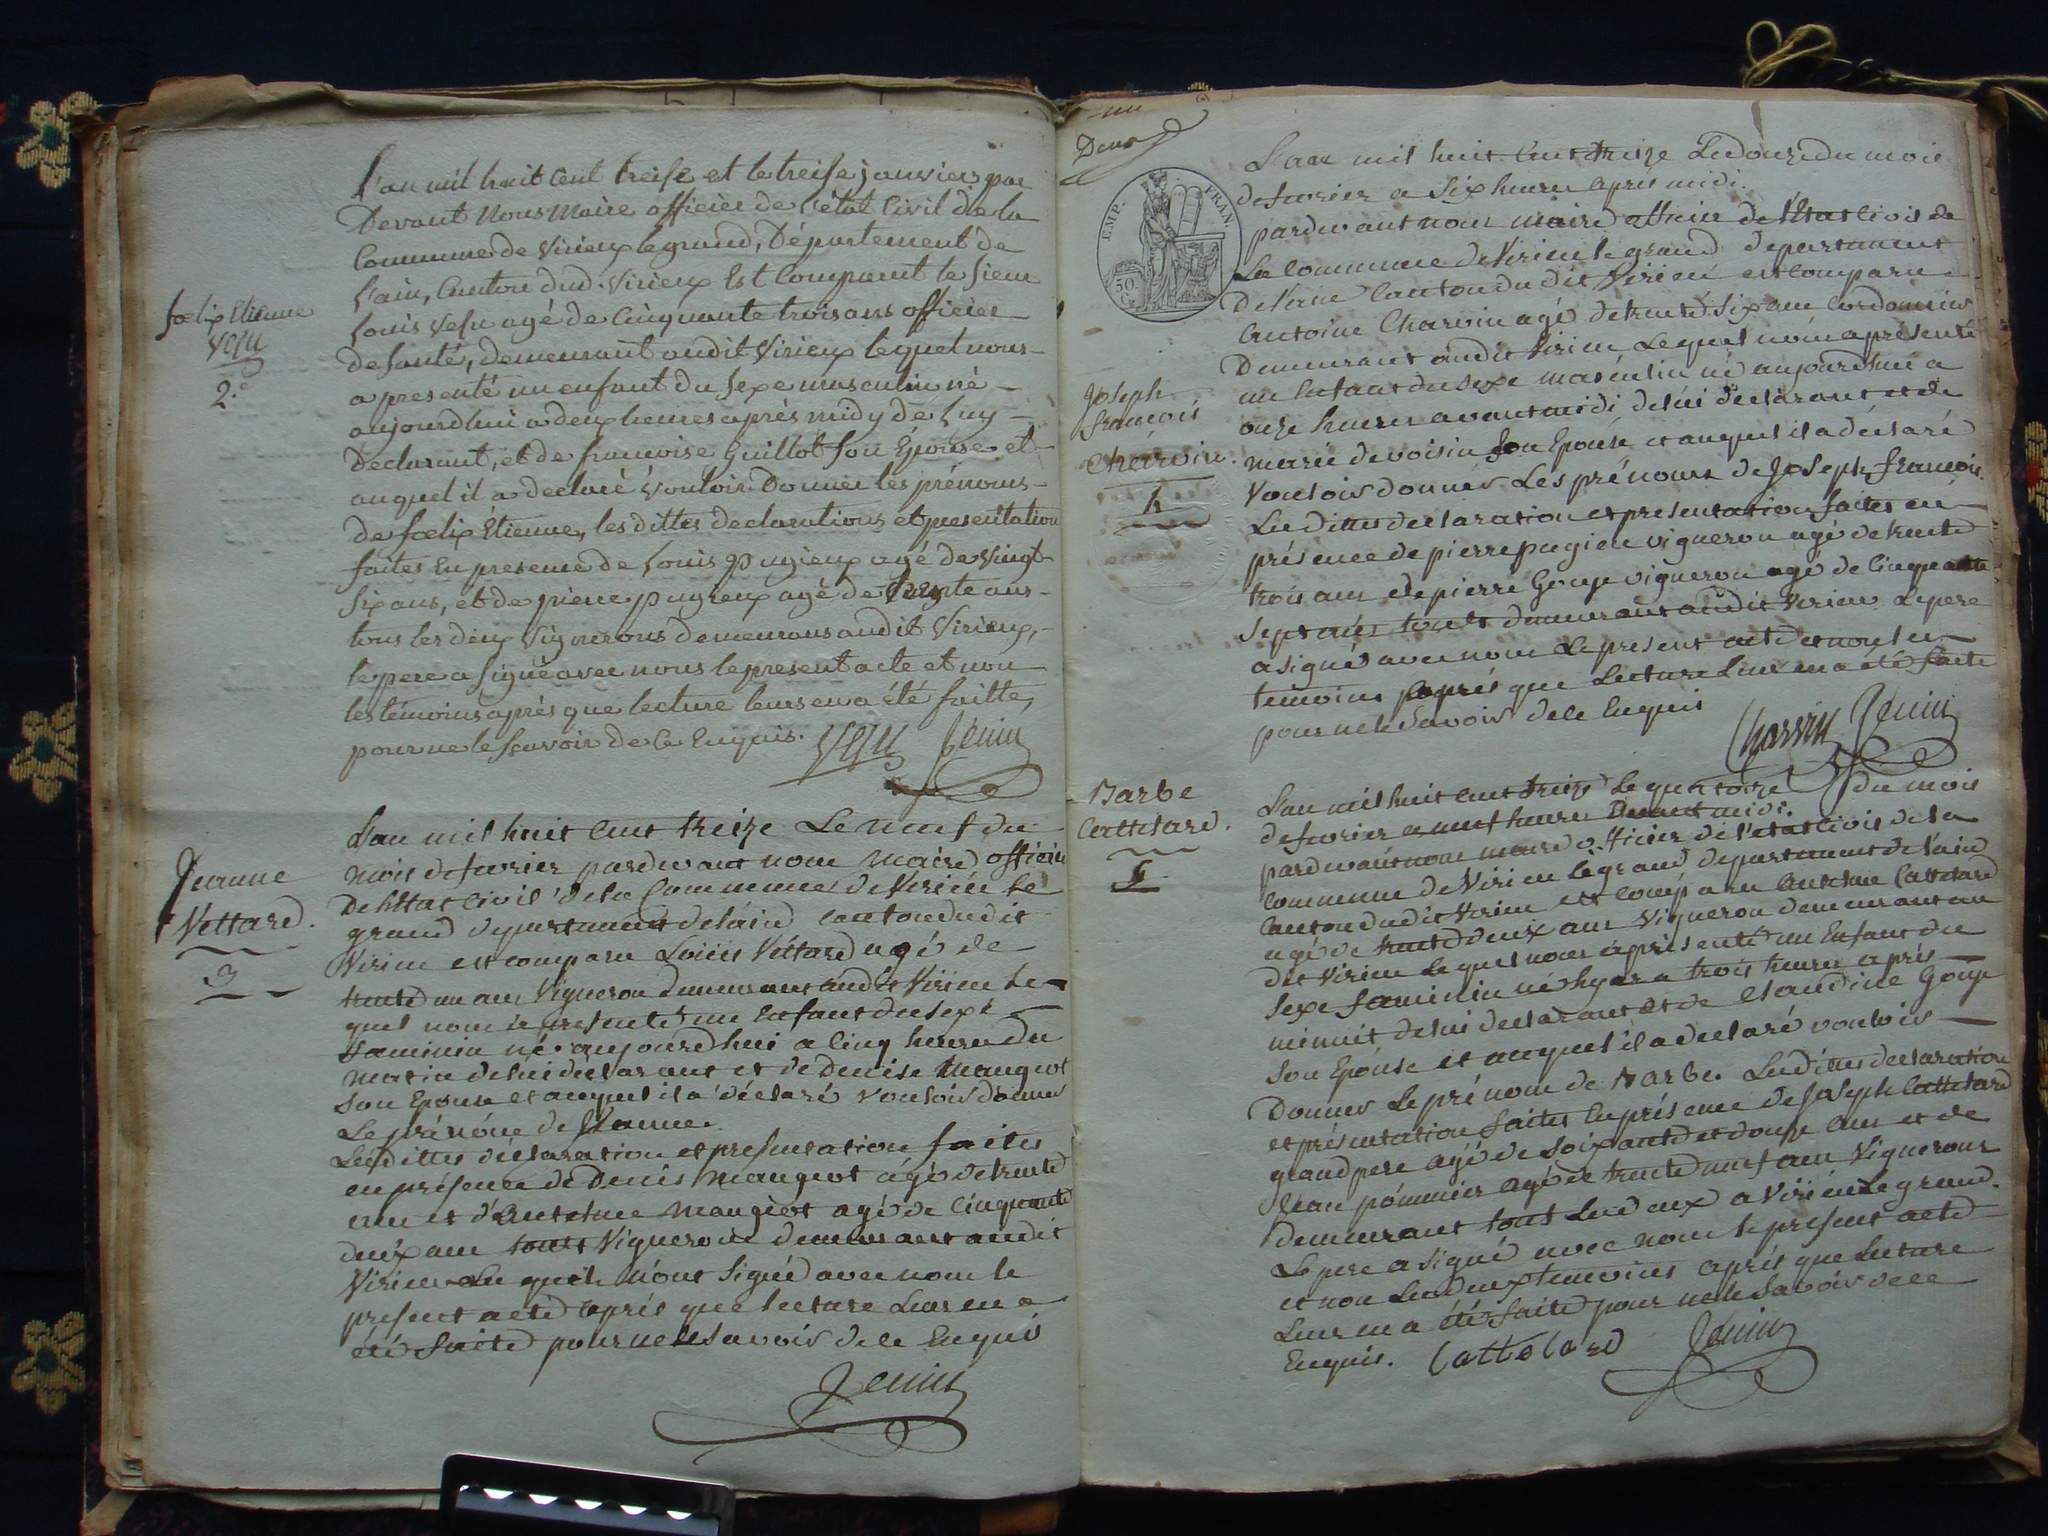 foelix Etienne
Vesu
2.e
L'an mil huit cent treise et le treise janvier par
Devant Nous Maire officier de l'état Civil de la
Commune de Virieux legrand, Département de
l'ain, Canton dud. Virieux Est Comparut le sieur
Louis Vesu agé de Cinquante trois ans officier
de santé, demeurant audit Virieux lequel nous
a presenté un enfant du sexe musculin né
aujourdhui a deux heures après midy de luy
Declarant, et de francoise Guillot son Épouse et
auquel il a declaré Vouloir Donner les prénoms
de foelix Étienne, les dittes declarations et presentation
faites En presence de Louis Pugieux agé de vingt
six ans, et de pierre pugieux agé de trente ans
tous les deux Vignerons demeurans audit Virieux,
le pere a signé avec nous le present acte et non
les témoins après que lecture leurs en a été faitte,
pour ne le scavoir de Ce Enquis. Vesu Jenin
Jeanne
Vettard.
3
L'an mil huit cent treize Le neuf du
mois de fevrier pardevant nous Maire officier
De l'Etat Civil de la Commune de Virieu le
grand departement de l'ain canton du dit
Virieu est comparu Louis Vettard agé de
trente un ans Vigneron demeurant audit Virieu le
quel nous a presenté un Enfant du sexe
faminin né aujourdhui a cinq heures du
matin de lui declarant et de Denise Mangeot
son Epouse et auquel il a déclaré vouloir donner
Le prénom de Jeanne.
Lesdittes déclaration et presentation faites
en présence de Denis Mangeot agé de trente
ans et d'Antelme Mangeot agé de Cinquante
deux ans touts Vignerons demeurant audit
Virieu Les quels n'ont signé avec nous le
present acte après que lecture leur en a
été faite pour ne le savoir de ce Enquis
Jenin
Deux
EMP. FRAN.
50 C.
Joseph
francois
Charvin.
4
L'an mil huit cent treize Le douze du mois
de fevrier a six heures après midi.
pardevant nous maire officier de l'Etat Civil de
La commune de Virieu le grand departement
De l'ain Canton du dit Virieu est comparu
Antoine Charvin agé de trente six ans Cordonnier
Demeurant audit Virieu Lequel nous a présenté
un Enfant du sexe masculin né aujourdhui a
onze heures avant midi de lui déclarant et de
marie devoisin son Epouse et auquel il a déclaré
Vouloir donner Les prénoms de Joseph francois.
Les dittes declaration et presentation faites en
présence de pierre pugieu vigneron agé de trente
trois ans et de pierre Gouje vigneron agé de Cinquante
sept ans touts demeurant audit Virieu Le pere
a signé avec nous Le present acte et non les
temoins après que Lecture Leur en a été faite
pour ne le savoir de ce Enquis Charvin Jenin
Barbe
Cattelard.
5
L'an mil huit cent treize Le quatorze du mois
de fevrier a neuf heures Devant midi.
pardevant nous maire officier de l'etat civil de la
commune de Virieu le grand departement de l'ain
Canton du dit Virieu est comparu Antelme Cattelard
agé de trente deux ans Vigneron demeurant au
dit Virieu Lequel nous a présenté un Enfant du
sexe faminin né hyer a trois heures après
minuit de lui declarant et de Claudine Gouje
son Epouse et auquel il a declaré vouloir
Donner Le prénom de Barbe. Lesdittes declaration
et présentation faites En présence de Joseph Cattelard
grand pere agé de soixante et douze ans et de
Jean pommier agé de trente neuf ans Vignerons
demeurant touts Les deux a Virieu le grand.
Le pere a signé avec nous le present acte
et non Les deux temoins après que Lecture
Leur en a été faite pour ne le savoir de ce
Enquis. Cattelard Jenin